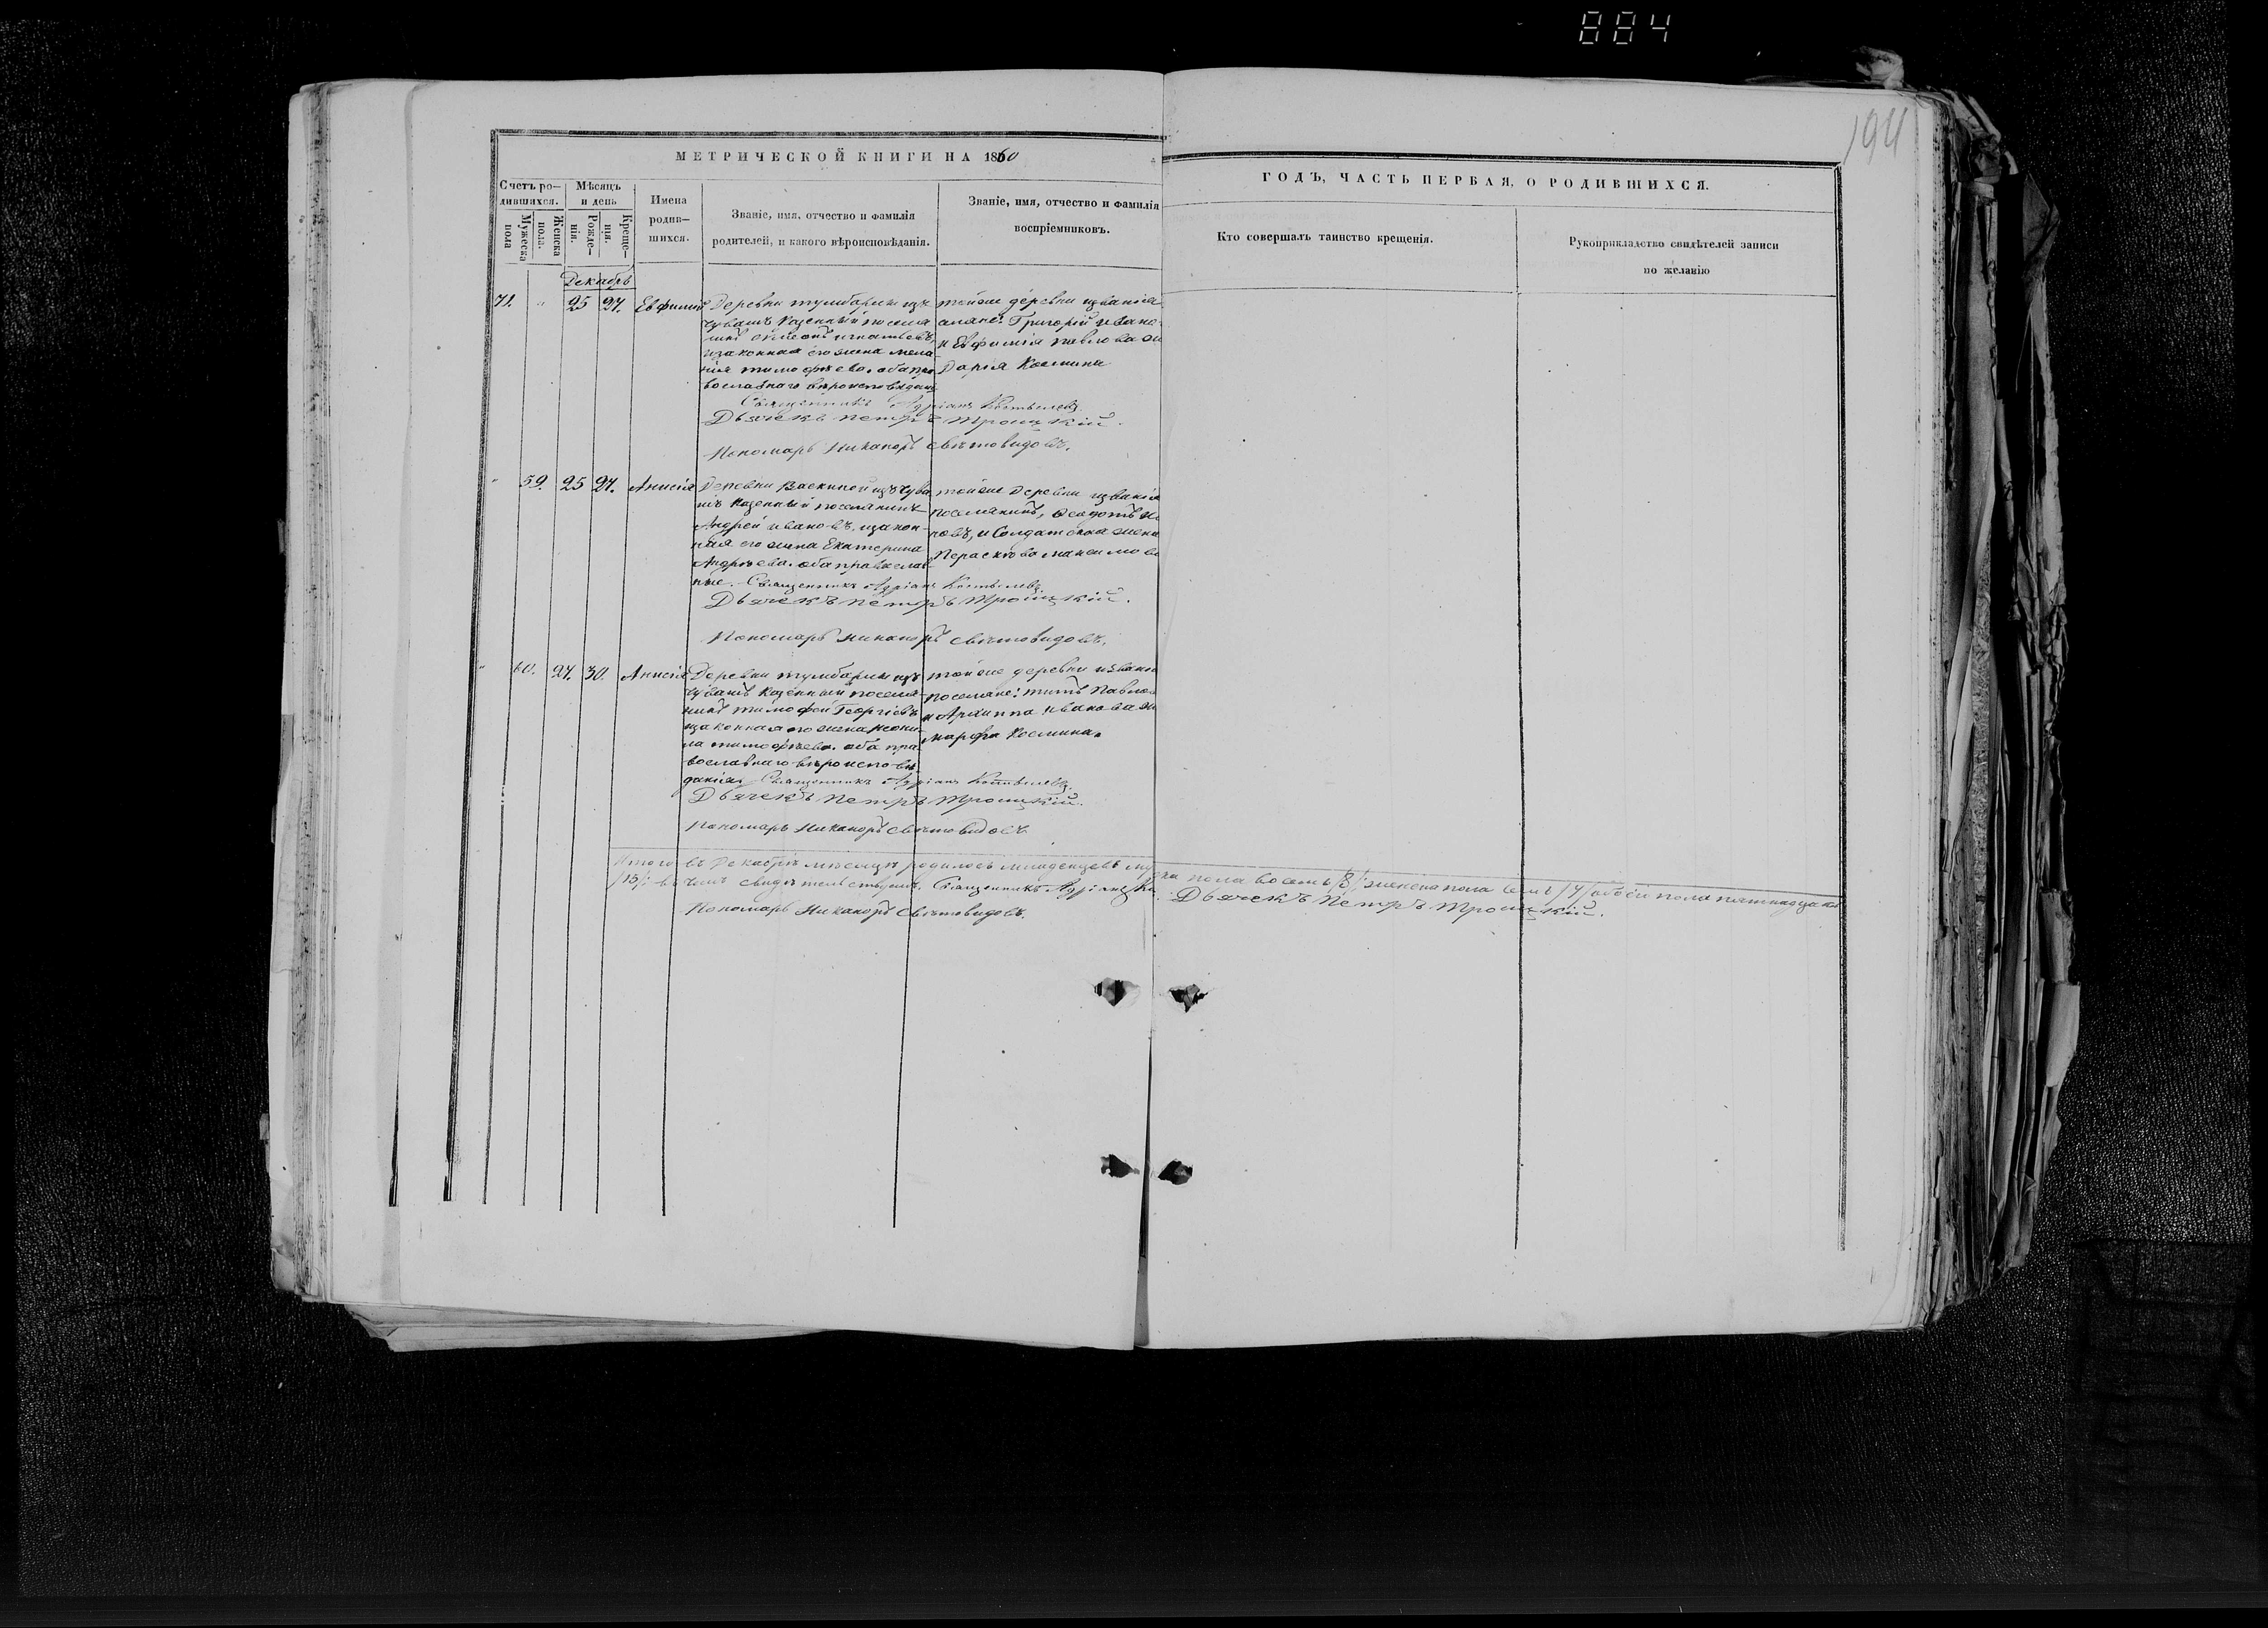 884
194
МЕТРИЧЕСКОЙ КНИГИ НА 1860
ГОДЪ, ЧАСТЬ ПЕРВАЯ, О РОДИВШИХСЯ.
Счетъ ро-
дившихся.
Мужеска
пола
Женска
пола.
Мѣсяцъ
и день
Рожде-
нія.
Креще-
нія.
Имена
родив-
шихся.
Званіе, имя, отчество и фамилія
родителей, и какого вѣроисповѣданія.
Званіе, имя, отчество и фамилія
воспріемниковъ.
Кто совершалъ таинство крещенія.
Рукоприкладство свидѣтелей записи
по желанію
Декабрь
71. „ 25 27. Евфимій
Деревни тумбарли изъ
чувашъ казенный поселя
нинъ игнатьевъ,
изаконная его жена мела-
нія тимофѣева. оба пра
вославнаго вѣроисповѣданія
тойже деревни
Григорій Ивано
и Евфимія павлова
Дарія Космина
Священникъ Адріанъ
Дьячекъ петръ троицкій.
Пономарь Никаноръ свѣтовидовъ.
„ 59. 25 27. Анисія
Деревни Васкиной изъ чува
шъ казенный поселянинъ
Андрей ивановъ, изакон-
ная его жена Екатерина
Андрѣева. оба православ
ные.
тойже деревни
поселянинъ, Ѳеодотъ
новъ, и Солдатская жена
Пераскева максимова
Священникъ Адріанъ
Дьячекъ петръ троицкій.
Пономарь никаноръ свѣтовидовъ.
„ 60. 27. 30. Анисія
Деревни тумбарли изъ
чувашъ казенный поселя-
нинъ тимофей Георгіевъ
изаконная его жена неони-
ла тимофѣева. оба пра-
вославнаго вѣроисповѣ-
данія.
тойже деревни
поселяне: титъ Павлов
и Архиппа иванова
марфа Космина.
Священникъ Адріанъ
Дьячекъ петръ троицкій.
Пономарь Никаноръ свѣтовидовъ
Итого въ Декабрѣ мѣсяцѣ родилось младенцевъ муж
ка пола восемь /8/ женска пола семь /7/ обоего пола пятнадцать
/15/: въ чемъ свидѣтельствуемъ. Священникъ Адріанъ
Дьячекъ Петръ троицкій.
Пономарь Никаноръ свѣтовидовъ.